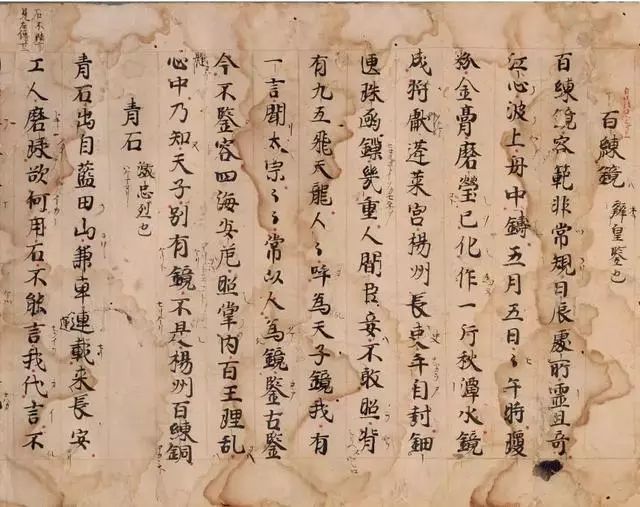 百練鏡 辨皇鑒也
百練鏡容範非常規日辰處所靈且奇
江心波上舟中鑄五月五日〻午時瓊
粉金膏磨瑩已化作一行秋潭水鏡
成將獻蓬萊宮楊州長吏手自封鈿
匣珠函鏁幾重人間臣妾不敢照背
有九五飛天龍人〻呼為天子鏡我有
一言聞太宗〻〻常以人為鏡鑒古鑒
今不鑒容四海安危照掌内百王理乱
心中乃知天子別有鏡不是楊州百練銅
青石 激忠烈也
青石出自藍田山兼車連載来長安
工人磨琢欲何用石不能言我代言不